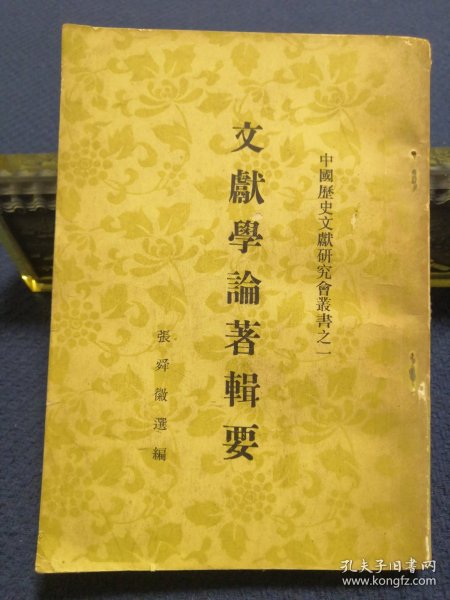 中國歷史文獻研究會叢書之一
文獻學論著輯要
張舜徽選編
孔夫子旧书网
www.kongfz.com